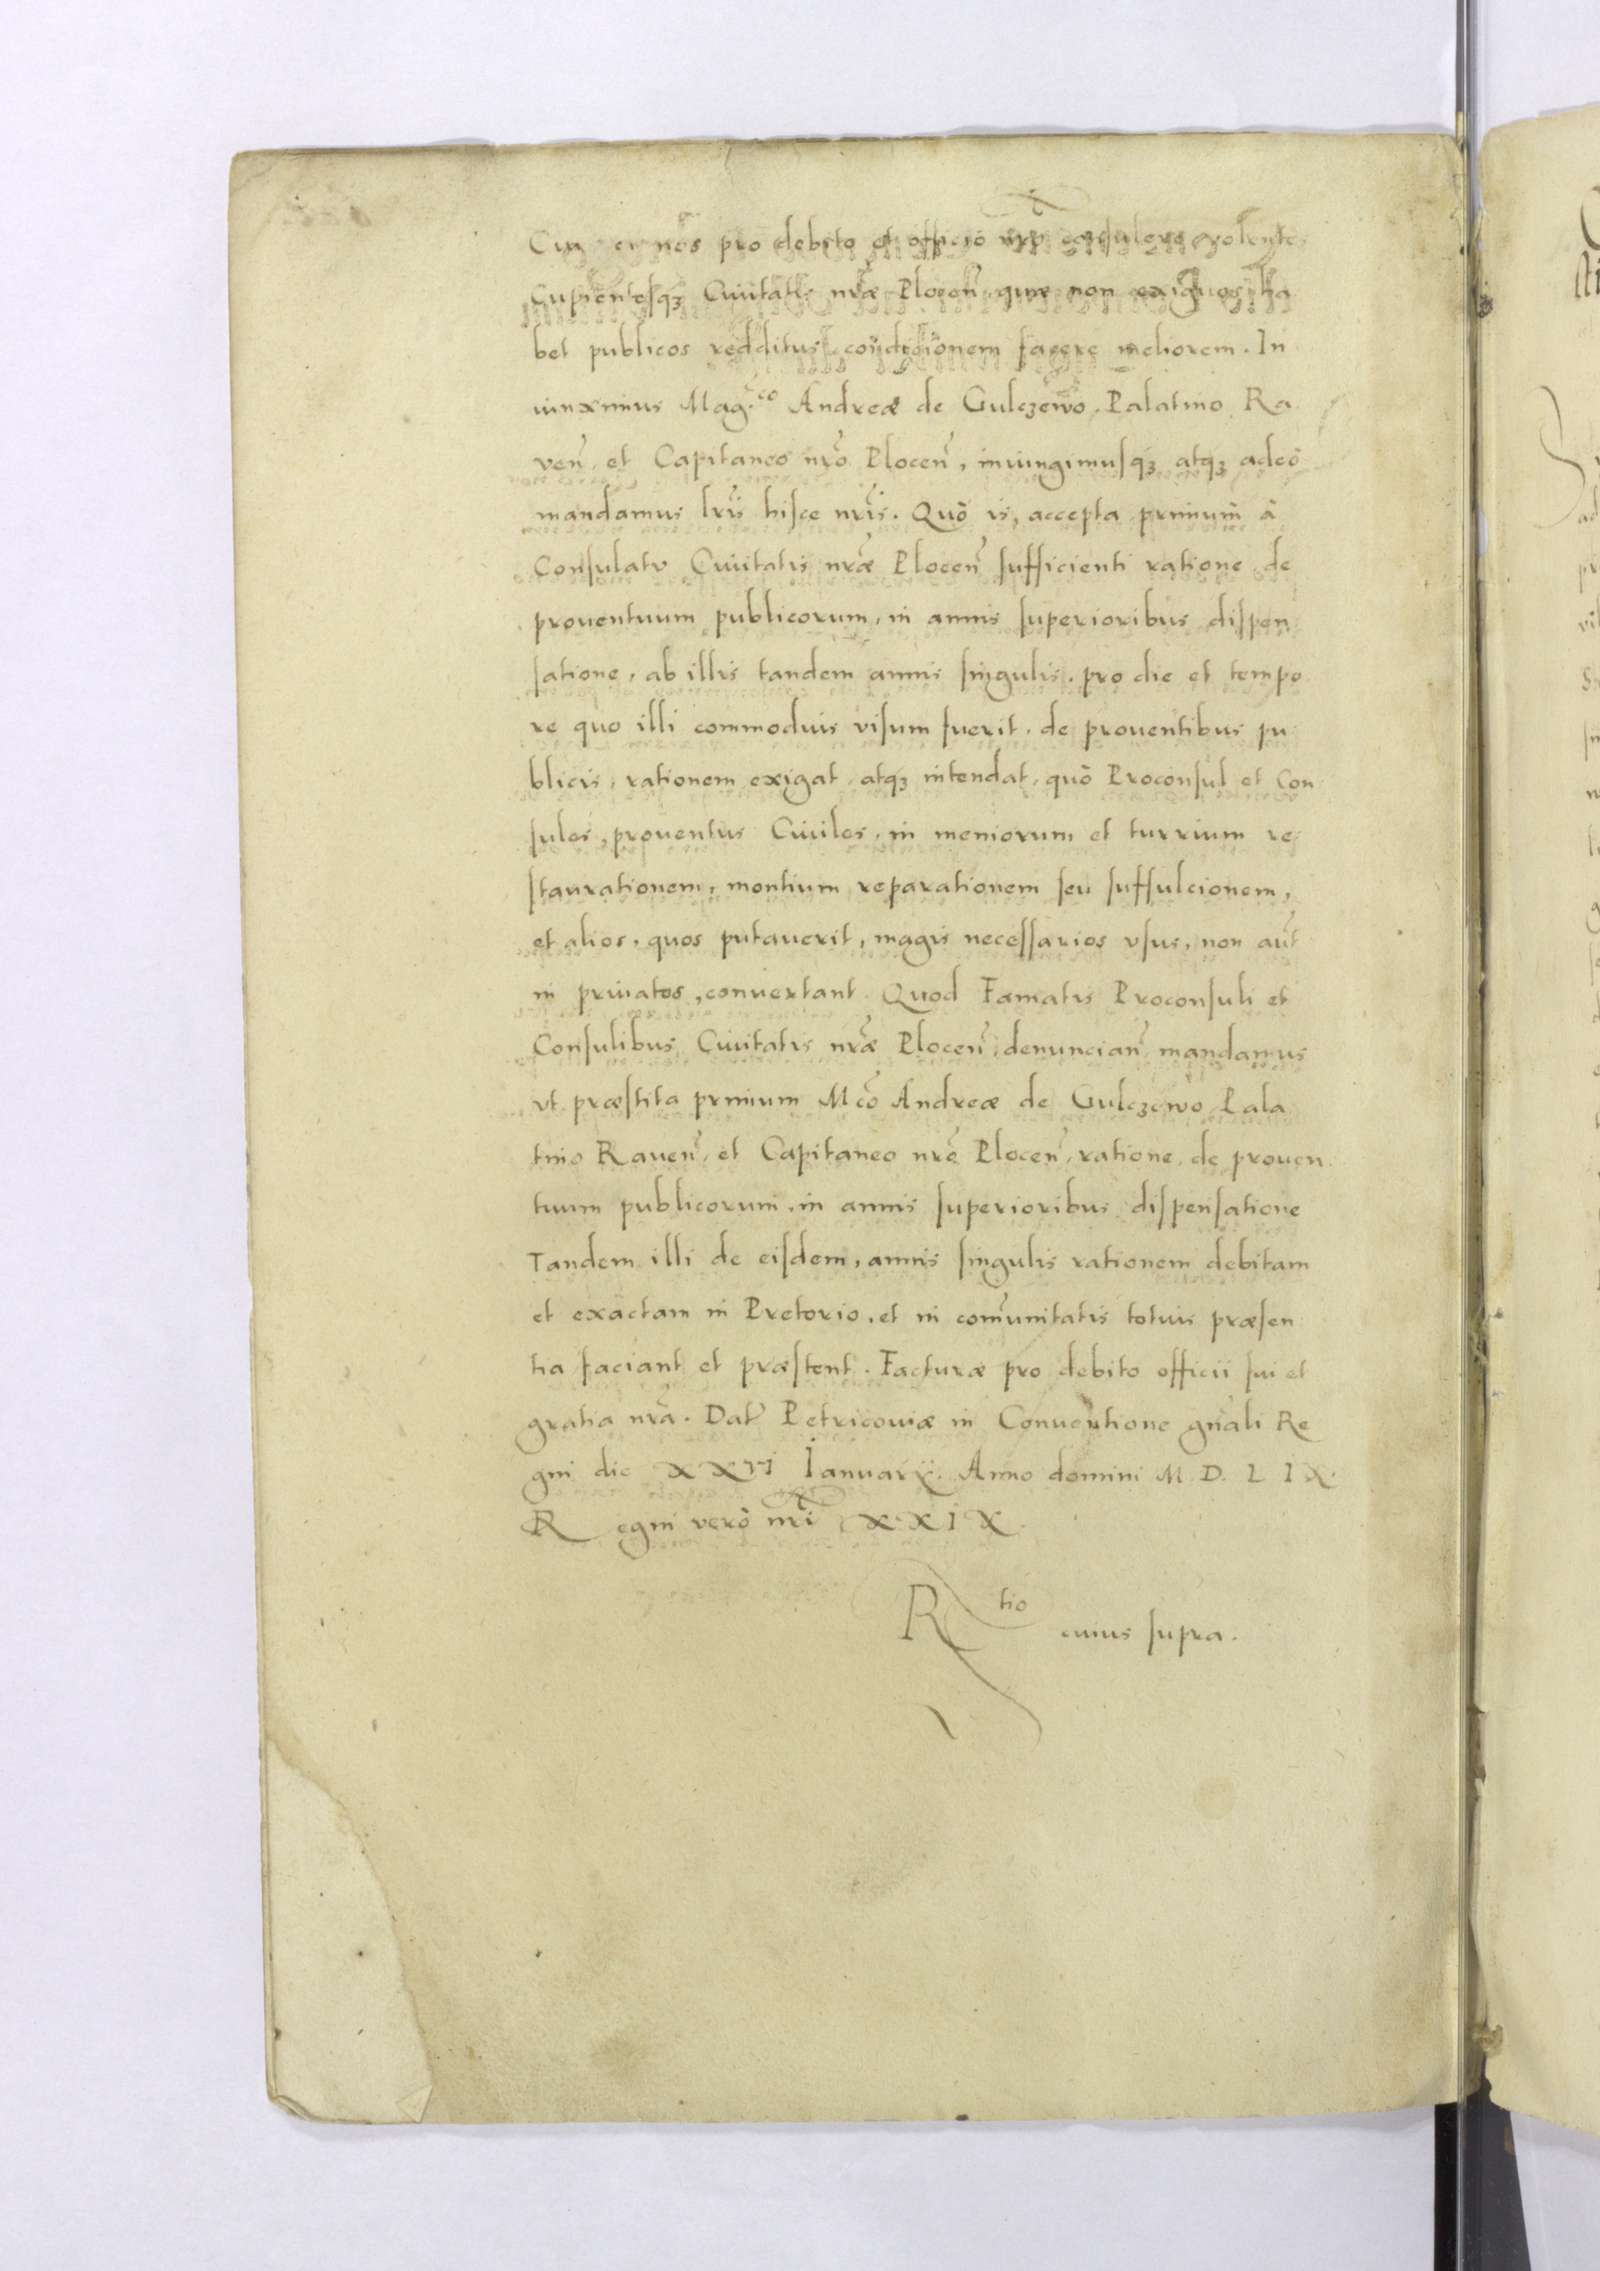 nos pro debito et officio nr̃o consulere volentes
Cupientesqꝫ Ciuitatis nr̃æ Plocen̄ quæ non exiguos ha
bet publicos redditus conditionem facere meliorem. In
iunximus Mag.co Andreæ de Gulczewo, Palatino Ra
ven̄, et Capitaneo nr̃o Plocen̄, iniungimusqꝫ atqꝫ adeò
mandamus lr̃is hisce nr̃is. Quò is, accepta primum à
Consulatv Ciuitatis nr̃æ Plocen̄ sufficienti ratione de
prouentuum publicorum, in annis superioribus dispen
satione, ab illis tandem annis singulis, pro die et tempo
re quo illi commodius visum fuerit, de prouentibus pu
blicis, rationem exigat, atqꝫ intendat, quò Proconsul et Con
sules, prouentus Ciuiles, in meniorum et turrium re
staurationem, montium reparationem seu suffulcionem,
et alios, quos putauerit, magis necessarios vsus, non aut̄
in priuatos, conuertant. Quod Famatis Proconsuli et
Consulibus Ciuitatis nr̃æ Plocen̄ denuncian̄ mandamus
vt præstita primum Mc̃o Andreæ de Gulczewo Pala
tino Rauen̄, et Capitaneo nr̃o Plocen̄, ratione, de prouen
tuum publicorum, in annis superioribus dispensatione
Tandem illi de eisdem, annis singulis rationem debitam
et exactam in Pretorio, et in com̄unitatis totius præsen
tia faciant et præstent. Facturæ pro debito officii sui et
gratia nr̃a. Dat̄ Petricouiæ in Conuentione gn̄ali Re
gni die XXVI Ianuarij. Anno domini M. D. L I X.
Regni verò nr̃i XXIX.
Rtio cuius supra.